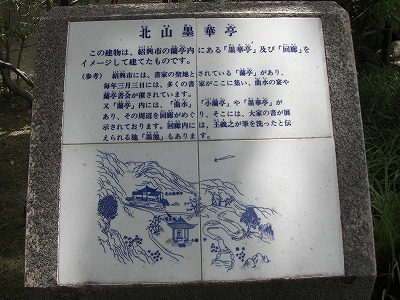 北山墨華亭
この建物は、紹興市の蘭亭内にある「墨華亭」及び「回廊」を
イメージして建てたものです。
(参考) 紹興市には、書家の聖地とされている「蘭亭」があり、
毎年三月三日には、多くの書家がここに集い、曲水の宴や
蘭亭書会が催されています。
又「蘭亭」内には、「曲水」「小蘭亭」や「墨華亭」が
あり、その周辺を回廊がめぐり、そこには、大家の書が展
示されております。回廊内に は、王羲之が筆を洗ったと伝
えられる池「墨池」もあります。